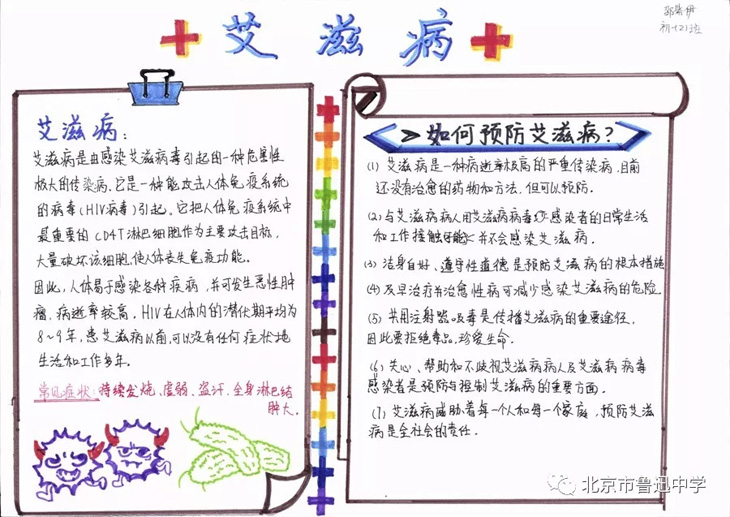 艾滋病
初一(2)班
艾滋病:
艾滋病是由感染艾滋病毒引起的一种危害性
极大的传染病.它是一种能攻击人体免疫系统
的病毒(HIV病毒)引起.它把人体免疫系统中
最重要的CD4T淋巴细胞作为主要攻击目标,
大量破坏该细胞,使人体丧失免疫功能。
因此,人体易于感染各种疾病,并可发生恶性肿
瘤,病逝率较高.HIV在人体内的潜伏期平均为
8~9年,患艾滋病以前,可以没有任何症状地
生活和工作多年。
常见症状:持续发烧、虚弱、盗汗、全身淋巴结
肿大.
如何预防艾滋病?
(1) 艾滋病是一种病逝率极高的严重传染病,目前
还没有治愈的药物和方法,但可以预防.
(2) 与艾滋病病人用艾滋病病毒感染者的日常生活
和工作接触并不会感染艾滋病.
(3) 洁身自好、遵守性道德是预防艾滋病的根本措施
(4) 及早治疗并治愈性病可减少感染艾滋病的危险.
(5) 共用注射器吸毒是传播艾滋病的重要途径,
因此要拒绝毒品,珍爱生命.
(6) 关心、帮助和不歧视艾滋病病人及艾滋病病毒
感染者是预防与控制艾滋病的重要方面.
(7) 艾滋病威胁着每一个人和每一个家庭,预防艾滋
病是全社会的责任.
北京市鲁迅中学